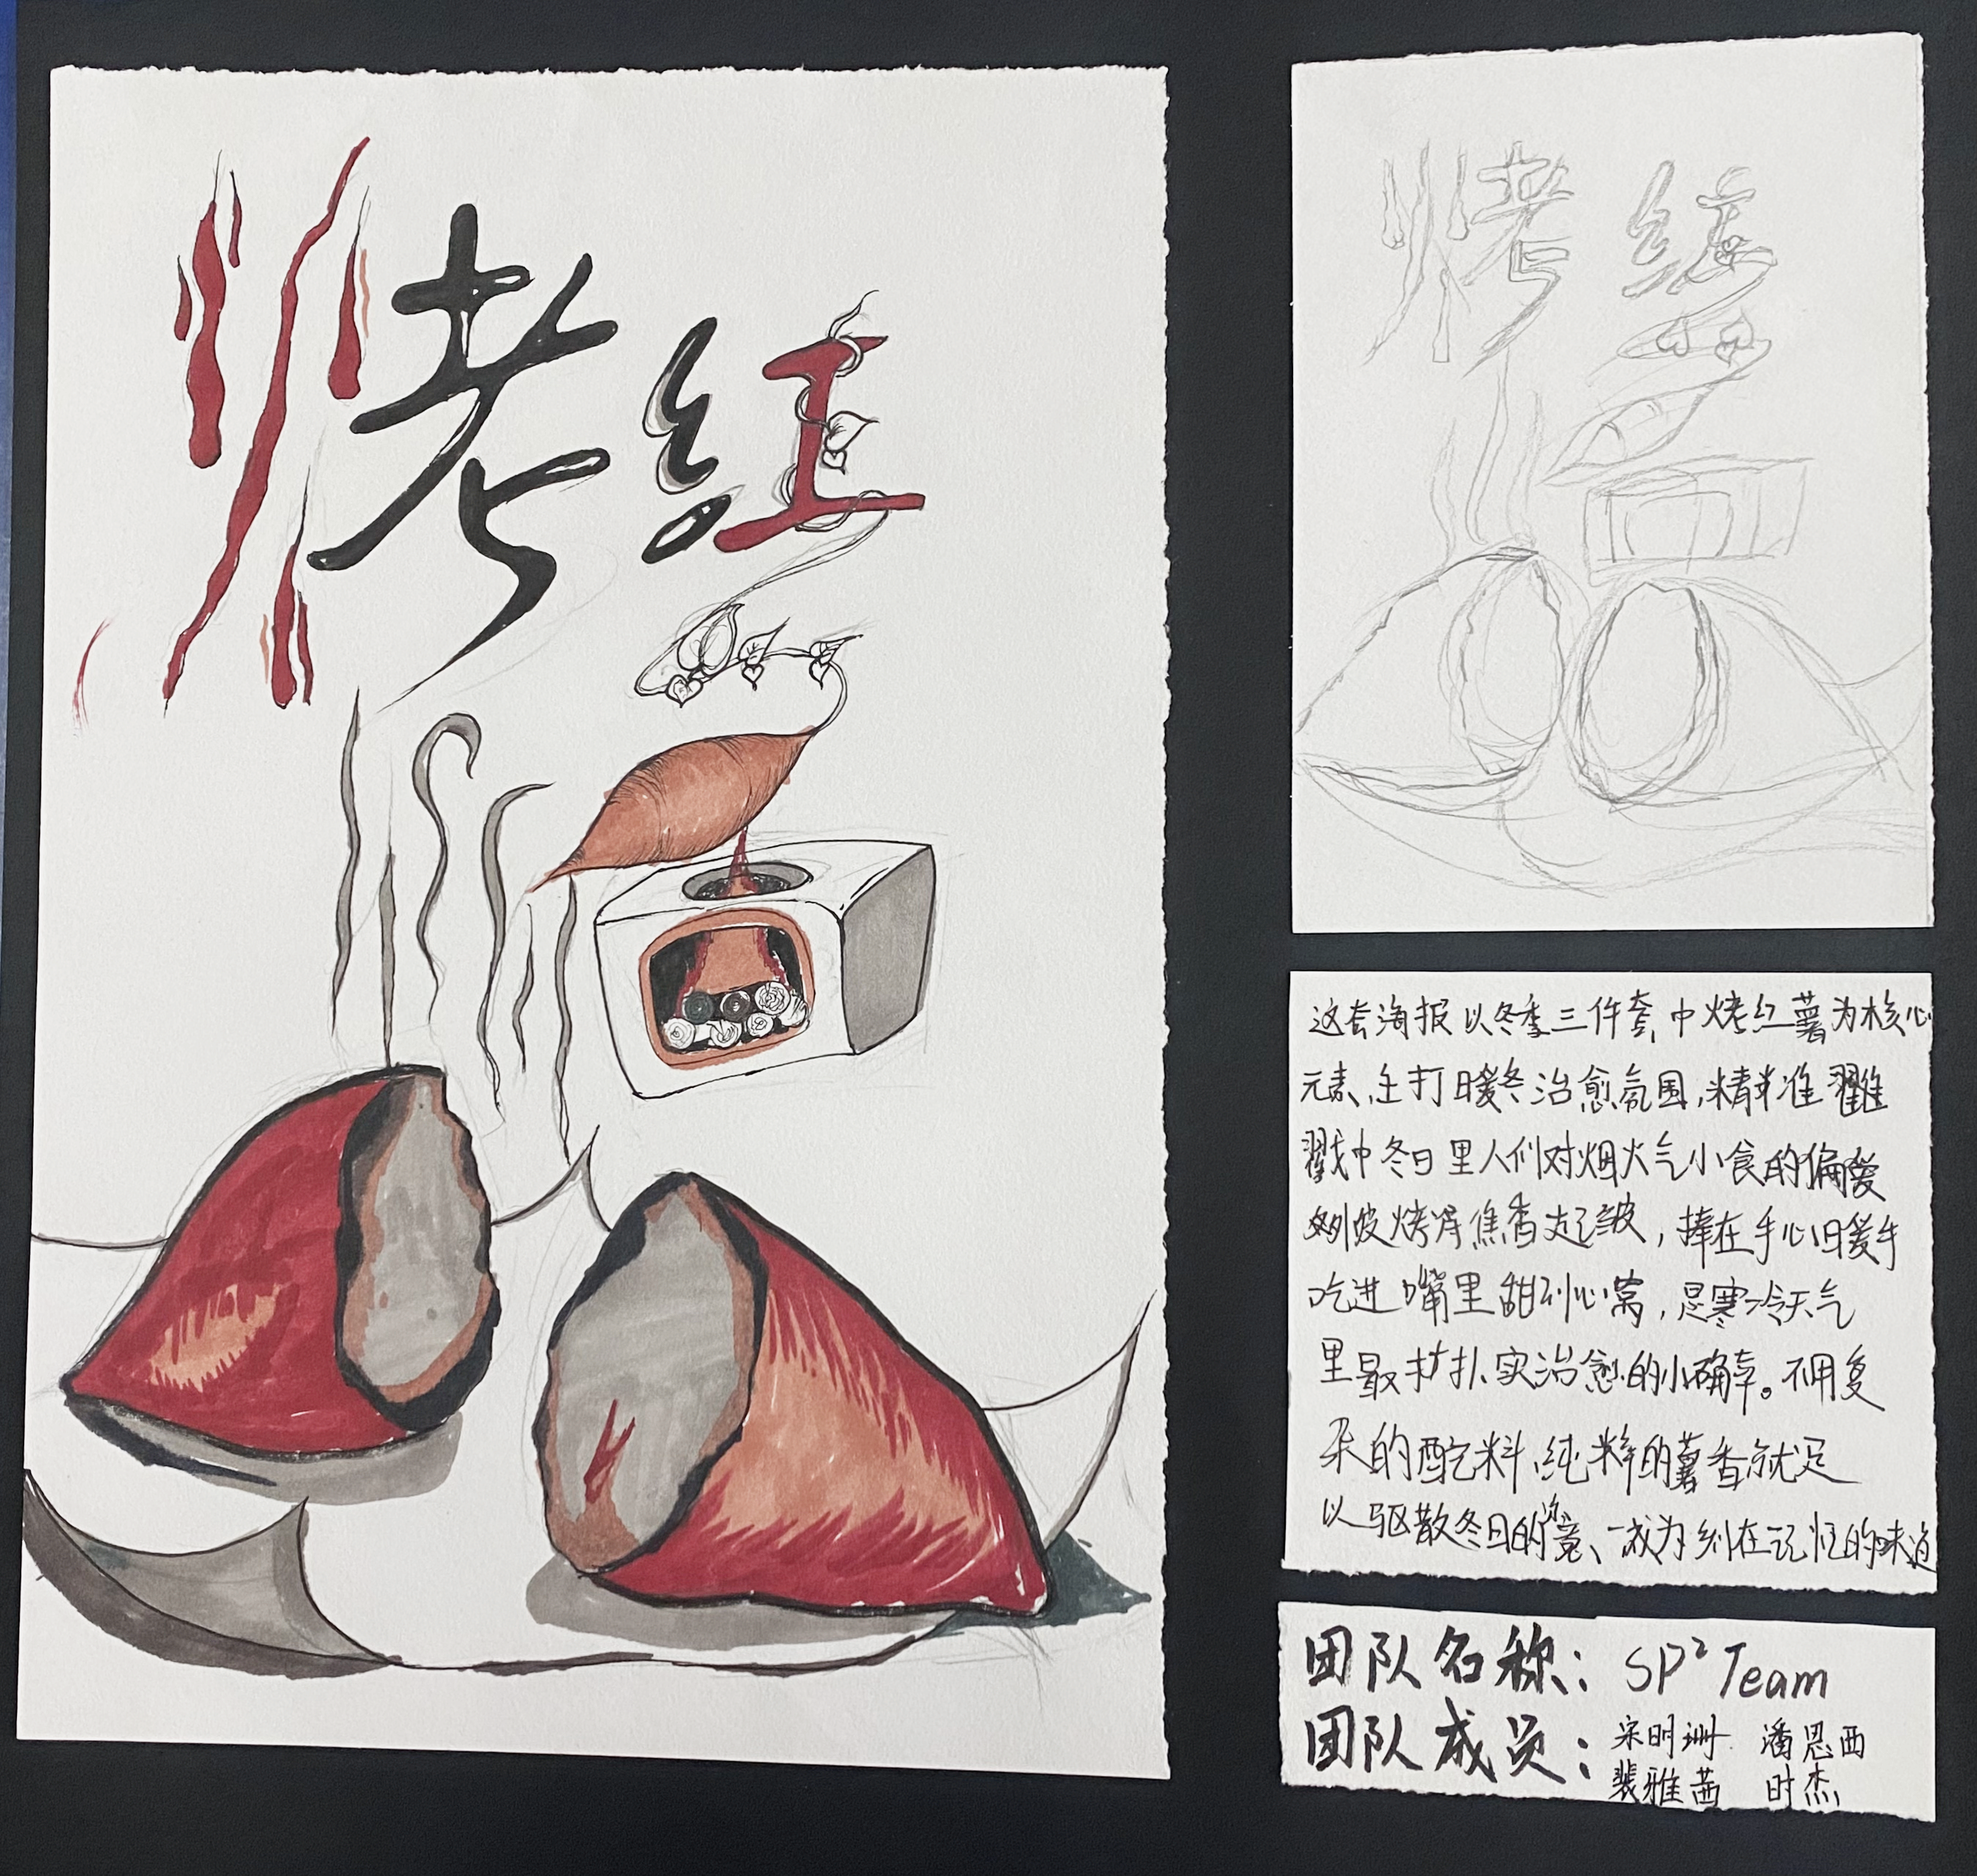 烤红
烤 红
这套海报以冬季三件套中烤红薯为核心
元素,主打暖冬治愈氛围,精准
戳中冬日里人们对烟火气小食的偏爱
皮烤得焦香起皱,捧在手心暖手
吃进嘴里甜到心窝,是寒冷天气
里最扎实治愈的小确幸。不用复
杂的配料,纯粹的薯香就足
以驱散冬日的寒意、成为刻在记忆的味道
团队名称: SP² Team
团队成员: 宋明珊 潘思西
裴雅茜 时杰